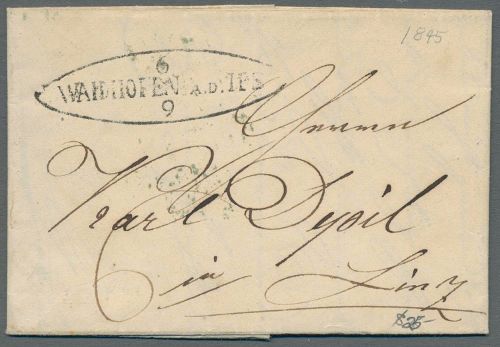 1845
6
WAIDHOFEN A.D. IPS
9
Herrn
Karl Dysil
in Linz
$25-